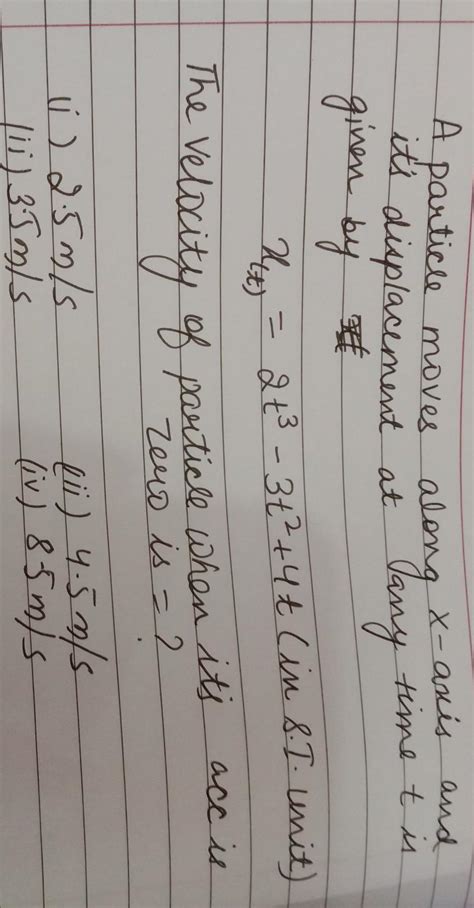 A particle moves along x-axis and
it's displacement at any time t is
given by
x(t) = 2t³ - 3t² + 4t (in S.I. unit)
The velocity of particle when its acc is
zero is = ?
(i) 2.5 m/s (ii) 4.5 m/s
(iii) 3.5 m/s (iv) 8.5 m/s